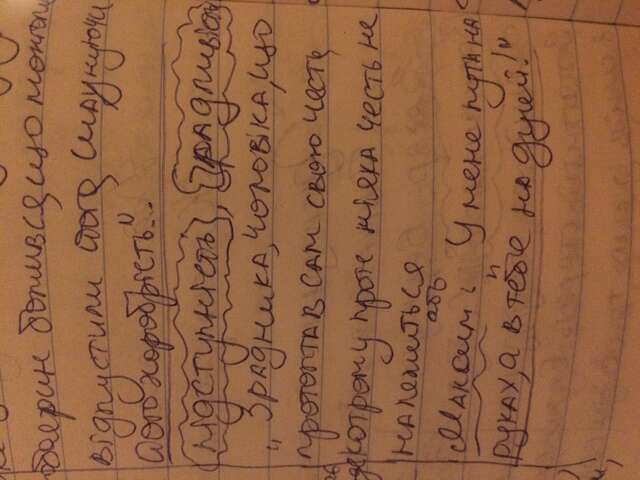 боярин боявся, що монголи
відпустили його, шануючи
його хоробрість"..
підступність, зрадливість
„ Зрадника, чоловіка, що
протоптав сам свою честь,
котрому проте ніяка честь не
належиться
або
Максим: У мене пута на
руках, а в тебе п на душі!"